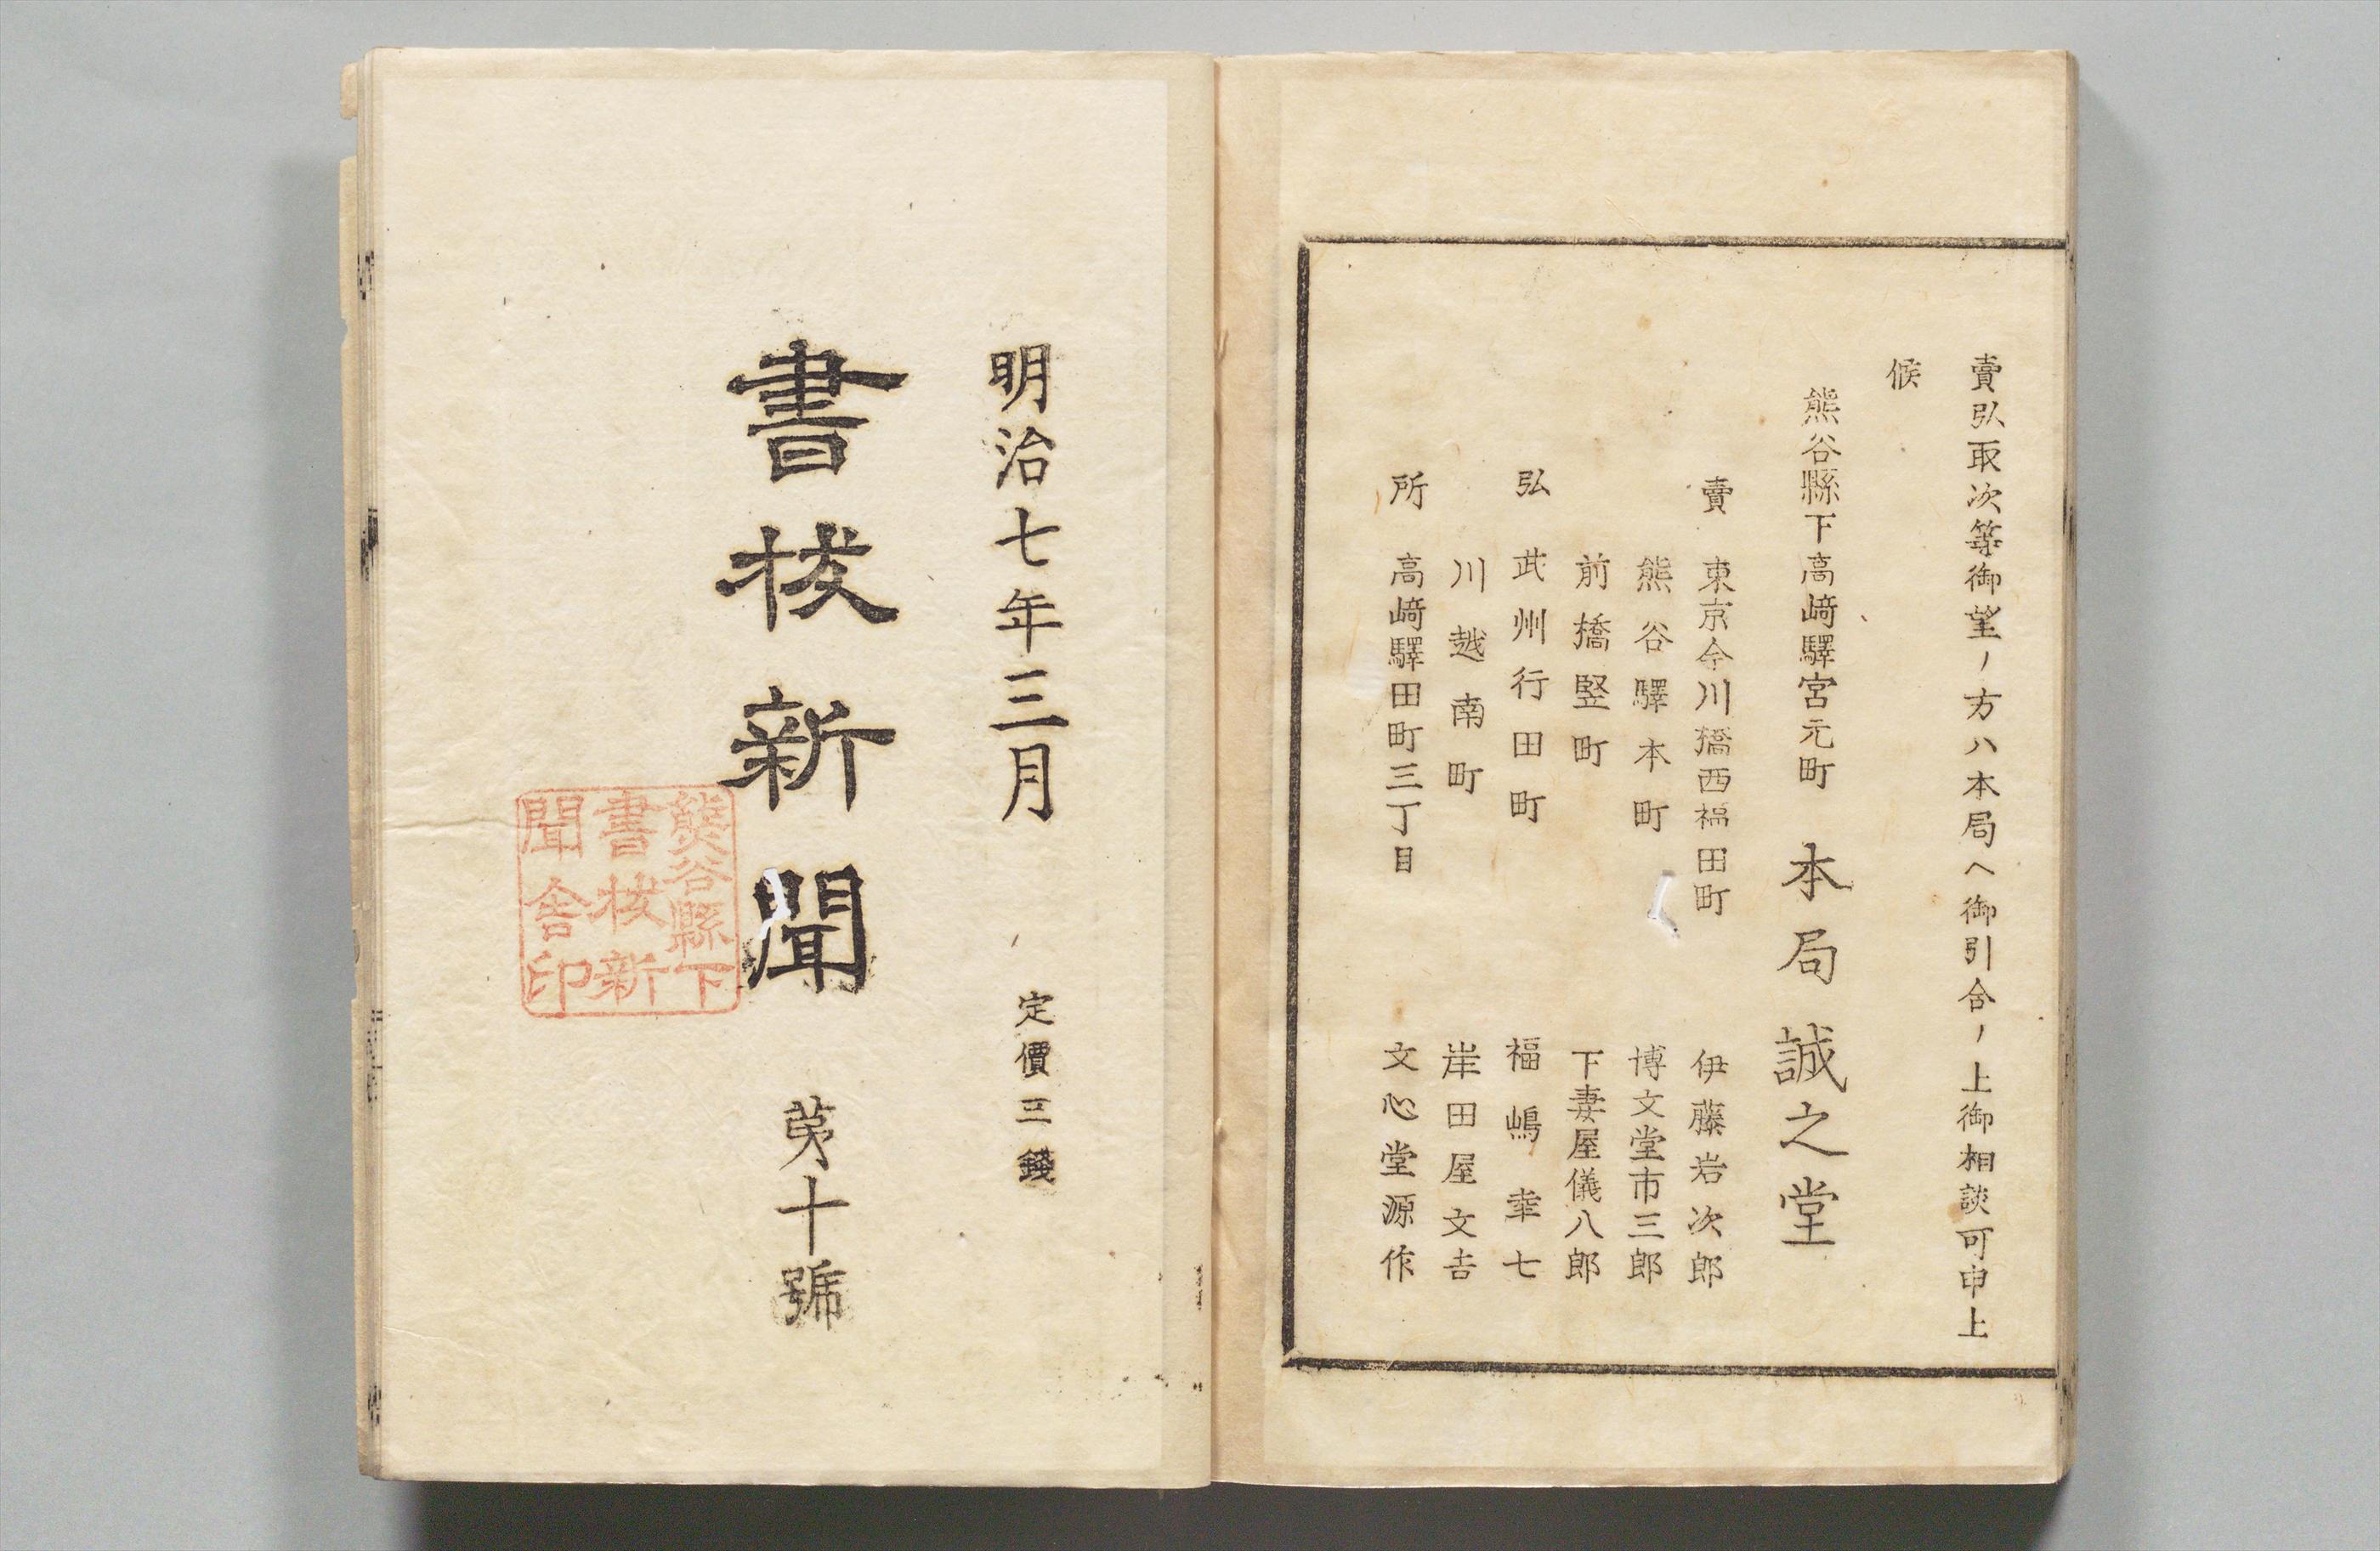 賣弘取次等御望ノ方ハ本局ヘ御引合ノ上御相談可申上
候
熊谷縣下高﨑驛宮元町 本局 誠之堂
賣 東京今川橋西福田町 伊藤岩次郎
熊谷驛本町 博文堂市三郎
前橋竪町 下妻屋儀八郎
弘 武州行田町 福嶋幸七
川越南町 岸田屋文吉
所 高﨑驛田町三丁目 文心堂源作
明治七年三月 定價三錢
書抜新聞 苐十號
熊谷縣下
書抜新
聞舎印